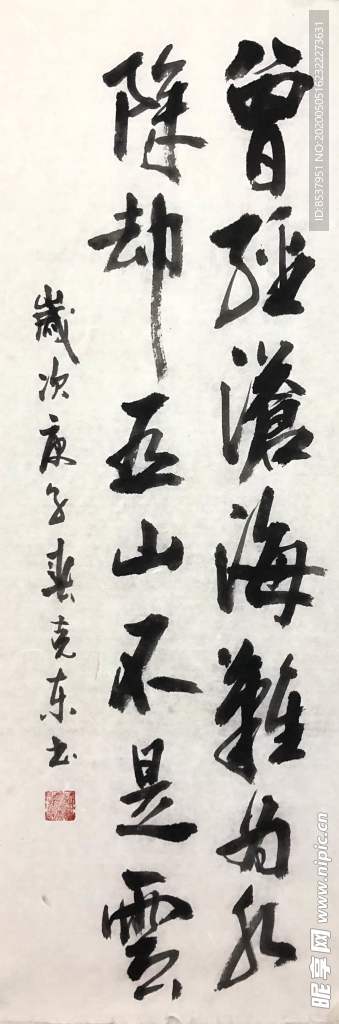 曾經滄海難为水
除却巫山不是雲
歲次庚子春克东书
ID:8537951 NO:20200505162322273631
昵享网 www.nipic.cn